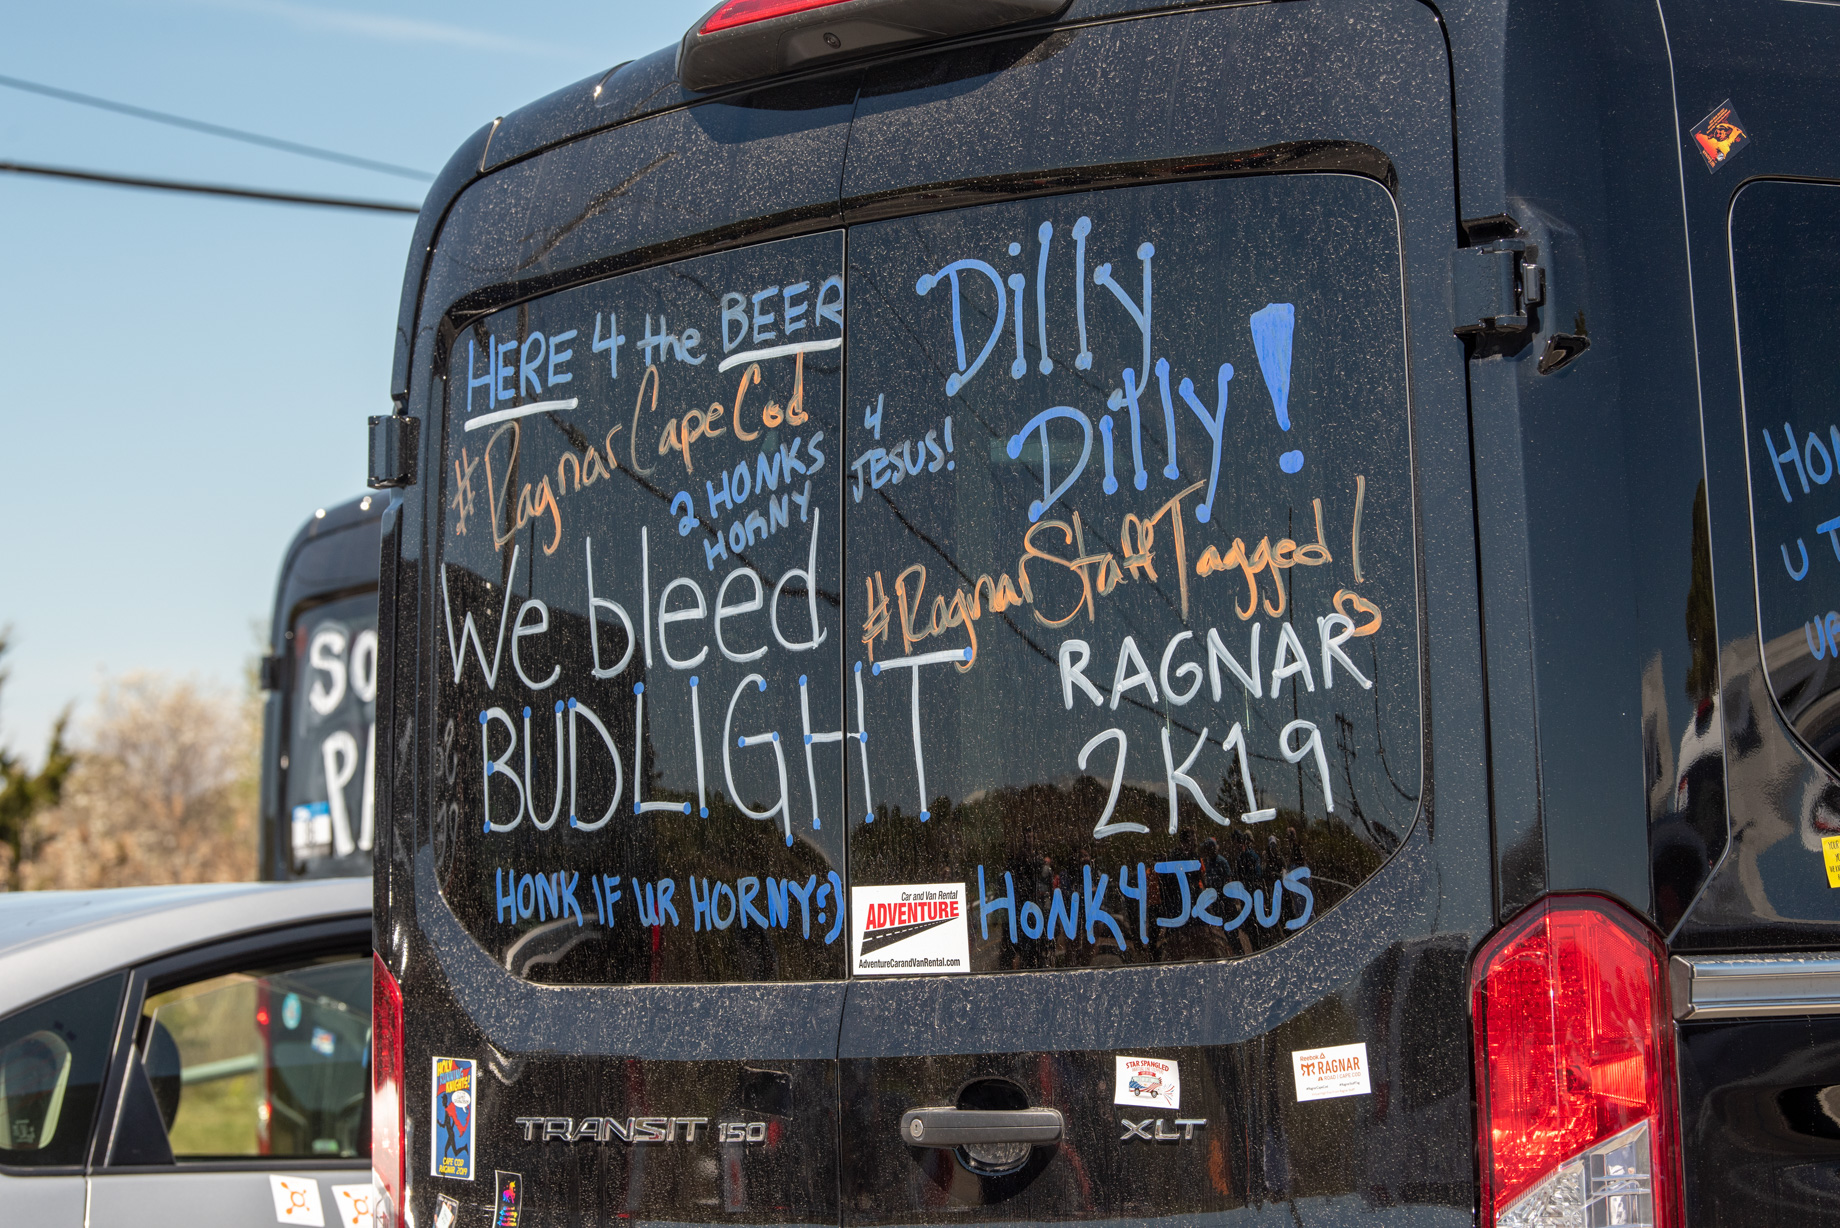 HERE 4 the BEER
#RagnarCapeCod
2 HONKS
HORNY
4
JESUS!
We bleed
BUDLIGHT
HONK IF UR HORNY?)
Dilly
Dilly!
#RagnarStaffTagged!
RAGNAR
2K19
HONK 4 Jesus
Car and Van Rental
ADVENTURE
AdventureCarandVanRental.com
TRANSIT 150
XLT
STAR SPANGLED
Reebok RAGNAR
ROAD CAPE COD
CAPE COD
RAGNAR 2019
SO
PA
HO
U T
UR